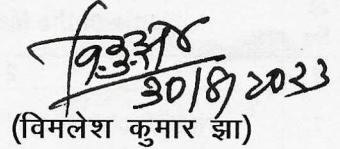 30/8/2023
(विमलेश कुमार झा)